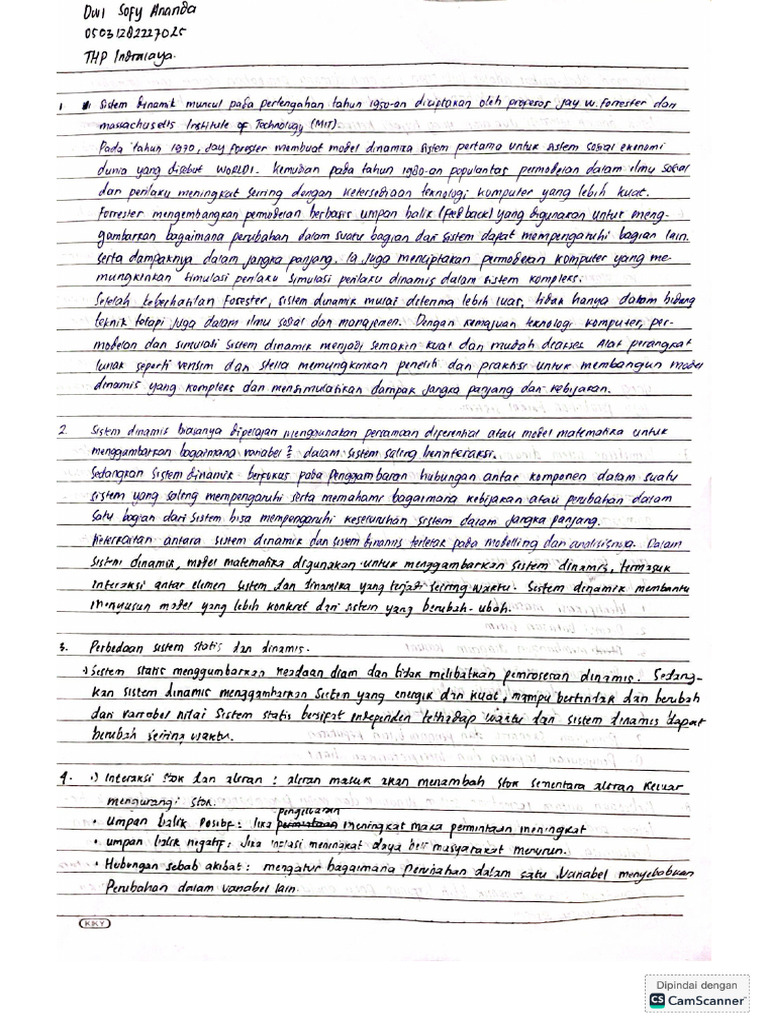 Dwi Sofy Ananda
05031282227025
THP Indralaya.
1 Sistem dinamik muncul pada pertengahan tahun 1950-an diciptakan oleh profesor Jay W. Forrester dan
massachusetis Institute of Technology (MIT).
Pada tahun 1970, Jay Foresser membuat model dinamika sistem pertama untuk sistem sosial ekonomi
dunia yang disebut WORLD1. Kemudian pada tahun 1980-an populantas permodelan dalam ilmu sosial
dan perilaku meningkat seiring dengan ketersediaan teknologi komputer yang lebih kuat.
Forrester mengembangkan permoderan berbasis umpan balik (feedback) yang digunakan untuk meng-
gambarkan bagaimana perubahan dalam suatu bagian dari sistem dapat mempengaruhi bagian lain.
serta dampaknya dalam jangka panjang. Ia juga menciptakan permoderan komputer yang me-
mungkinkan simulasi perilaku simulasi perilaku dinamis dalam sistem kompleks.
Setelah keberhasilan Forester, sistem dinamik mulai diterima lebih luas, tidak hanya dalam bidang
teknik tetapi juga dalam ilmu sosial dan manajemen. Dengan kemajuan teknologi komputer, per-
modelan dan simulasi sistem dinamik menjadi semakin kuat dan mudah diakses Alat perangkat
lunak seperti vensim dan stella memungkinkan peneliti dan praktisi untuk membangun model
dinamis yang kompleks dan mensimulasikan dampak jangka panjang dari kebijakan.
2. Sistem dinamis biasanya dipelajari menggunakan persamaan diferential atau model matematika untuk
menggambarkan bagaimana variabel2 dalam sistem saling berinteraksi.
Sedangkan sistem dinamik berfokus pada penggambaran hubungan antar komponen dalam suatu
sistem yang saling mempengaruhi serta memahami bagaimana kebijakan atau perubahan dalam
satu bagian dari sistem bisa mempengaruhi keseluruhan sistem dalam jangka panjang.
Keterkaitan antara sistem dinamik dan sistem dinamis terletak pada modelling dan analisisnya. Dalam
sistem dinamik, model matematika digunakan untuk menggambarkan sistem dinamis, termasuk
interaksi antar elemen sistem dan dinamika yang terjadi seiring waktu. Sistem dinamik membantu
menyusun model yang lebih konkret dari sistem yang berubah-ubah.
3. Perbedaan sistem statis dan dinamis.
Sistem statis menggambarkan keadaan diam dan tidak melibatkan pemrosesan dinamis. Sedang-
kan sistem dinamis menggambarkan sistem yang energik dan kuat, mampu bertindak dan berubah
dari variabel nilai sistem statis bersifat independen terhadap waktu dan sistem dinamis dapat
berubah seiring waktu.
4. •) Interaksi stok dan aliran : aliran masuk akan menambah stok sementara aliran keluar
mengurangi stok.
• Umpan balik positif : Jika pengeluaran meningkat maka permintaan meningkat
• umpan balik negatif : Jika inflasi meningkat daya beli masyarakat menurun.
• Hubungan sebab akibat : mengatur bagaimana perubahan dalam satu variabel menyebabkan
Perubahan dalam variabel lain.
KKY
Dipindai dengan
CS CamScanner